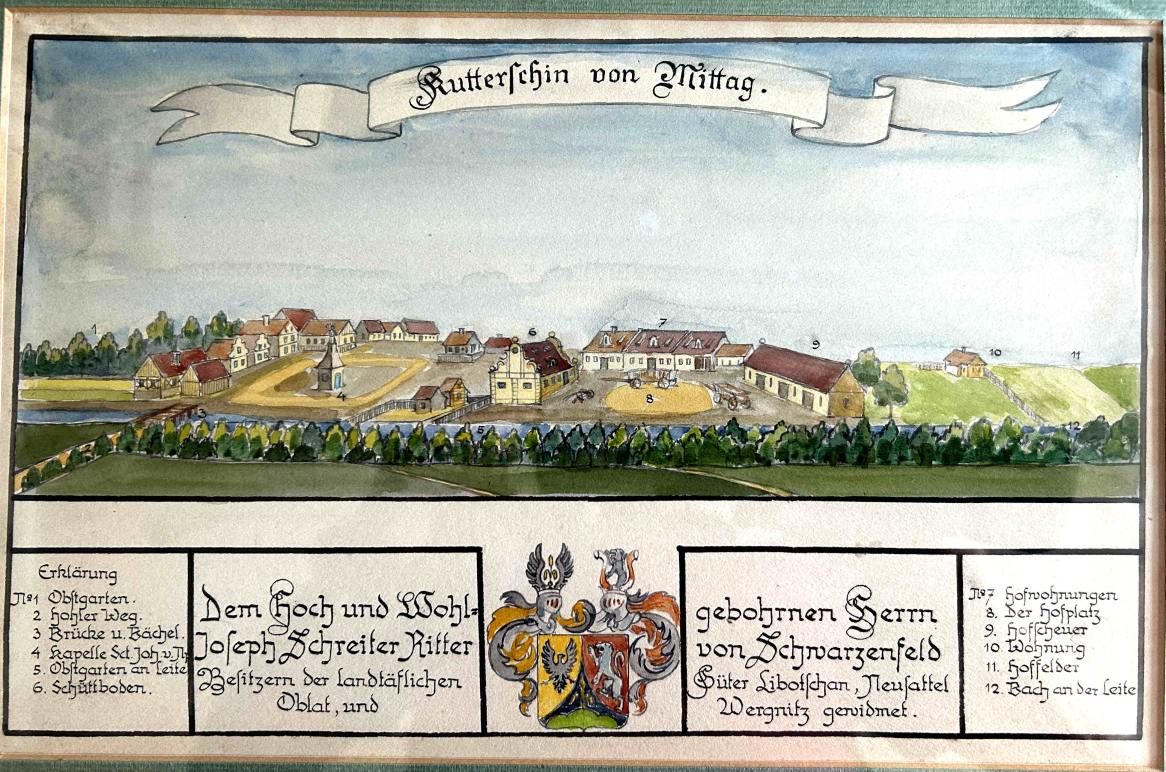 Kutterschin von Mittag.
1
2
3
4
5
6
7
8
9
10
11
12
Erklärung
No 1 Obstgarten.
2 hohler Weg.
3 Brücke u. Bächel.
4 Kapelle Sct Joh v.
5. Obstgarten an Leite
6. Schüttboden.
Dem Hoch und Wohl=
Joseph Schreiter Ritter
Besitzern der landtäflichen
Oblat, und
gebohrnen Herrn
von Schwarzenfeld
Güter Libotschan, Neusattel
Wergnitz gewidmet.
No 7 Hofwohnungen
8. Der Hofplatz
9. Hofscheuer
10 Wohnung
11. Hoffelder
12. Bach an der Leite